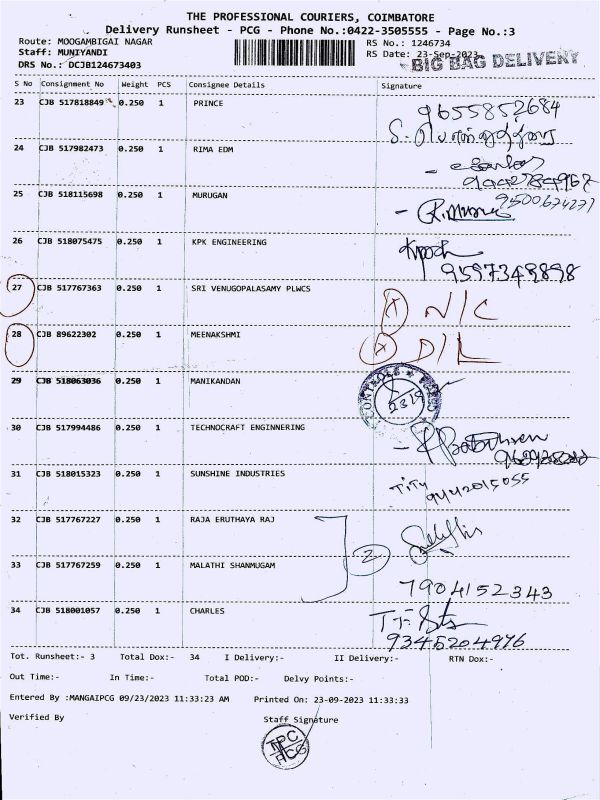 THE PROFESSIONAL COURIERS, COIMBATORE
Delivery Runsheet - PCG - Phone No.:0422-3505555 - Page No.:3
Route: MOOGAMBIGAI NAGAR RS No.: 1246734
Staff: MUNIYANDI RS Date: 23-Sep-2023
DRS No.: DCJB124673403 BIG BAG DELIVERY
S No Consignment No Weight PCS Consignee Details Signature
23 CJB 517818849 0.250 1 PRINCE 9655852684
24 CJB 517982473 0.250 1 RIMA EDM
25 CJB 518115698 0.250 1 MURUGAN
26 CJB 518075475 0.250 1 KPK ENGINEERING
9597349898
27 CJB 517767363 0.250 1 SRI VENUGOPALASAMY PLWCS N/C
28 CJB 89622302 0.250 1 MEENAKSHMI D/L
29 CJB 518063036 0.250 1 MANIKANDAN
30 CJB 517994486 0.250 1 TECHNOCRAFT ENGINNERING
31 CJB 518015323 0.250 1 SUNSHINE INDUSTRIES
9442015055
32 CJB 517767227 0.250 1 RAJA ERUTHAYA RAJ
2
33 CJB 517767259 0.250 1 MALATHI SHANMUGAM
7904152343
34 CJB 518001057 0.250 1 CHARLES
9345204976
Tot. Runsheet:- 3 Total Dox:- 34 I Delivery:- II Delivery:- RTN Dox:-
Out Time:- In Time:- Total POD:- Delvy Points:-
Entered By :MANGAIPCG 09/23/2023 11:33:23 AM Printed On: 23-09-2023 11:33:33
Verified By Staff Signature
TPC
PCG